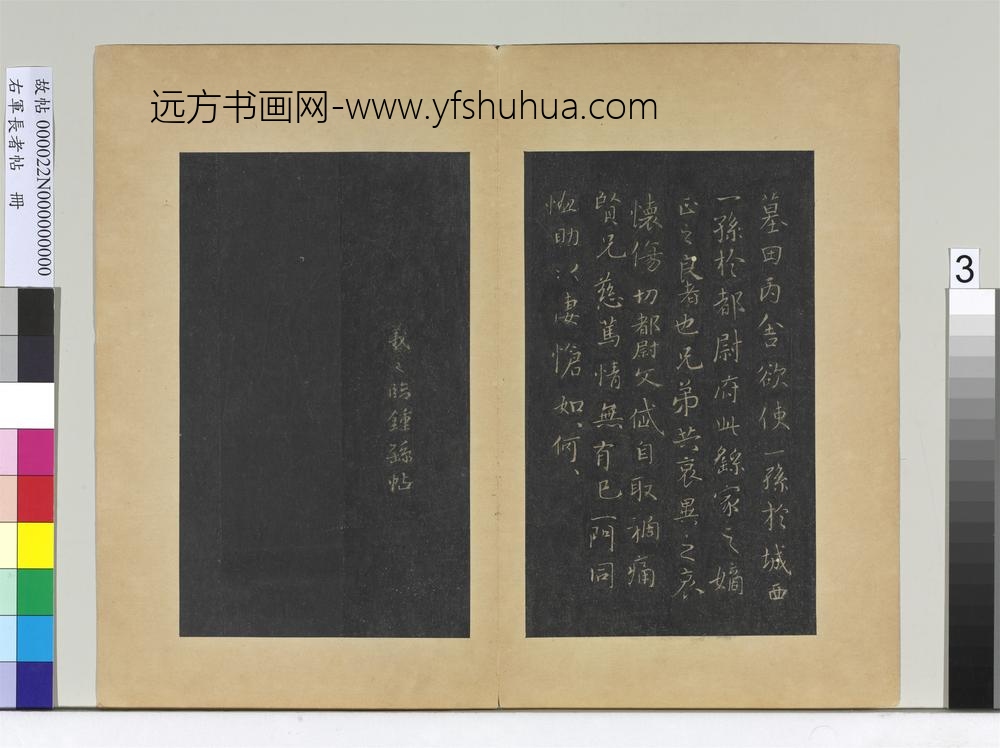 远方书画网-www.yfshuhua.com
故帖 000022N000000000
右軍長者帖 冊
3
墓田丙舍欲使一孫於城西
一孫於都尉府此繇家之嫡
正之良者也兄弟共哀異之哀
懷傷切都尉文岱自取禍痛
賢兄慈篤情無有已一門同
恤助以悽愴如何、
羲之臨鍾繇帖